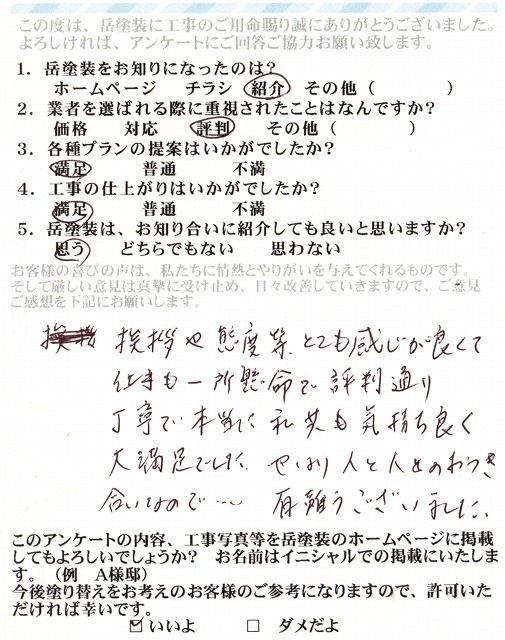 この度は、岳塗装に工事のご用命賜り誠にありがとうございました。
よろしければ、アンケートにご回答ご協力お願い致します。
1．岳塗装をお知りになったのは？
ホームページ　チラシ　紹介　その他（　　　　）
2．業者を選ばれる際に重視されたことはなんですか？
価格　対応　評判　その他（　　　　）
3．各種プランの提案はいかがでしたか？
満足　普通　不満
4．工事の仕上がりはいかがでしたか？
満足　普通　不満
5．岳塗装は、お知り合いに紹介しても良いと思いますか？
思う　どちらでもない　思わない
お客様の喜びの声は、私たちに情熱とやりがいを与えてくれるものです。
そして厳しい意見は真摯に受け止め、日々改善していきますので、ご意見
ご感想を下記にお願いします。
挨拶や態度等、とても感じが良くて
仕事も一所懸命で評判通り
丁寧で本当に私共も気持ち良く
大満足でした。やはり人と人とのおつき
合いなので…… 有難うございました。
このアンケートの内容、工事写真等を岳塗装のホームページに掲載
してもよろしいでしょうか？　お名前はイニシャルでの掲載にいたしま
す。（例　A様邸）
今後塗り替えをお考えのお客様のご参考になりますので、許可いた
だければ幸いです。
☑ いいよ　□ ダメだよ